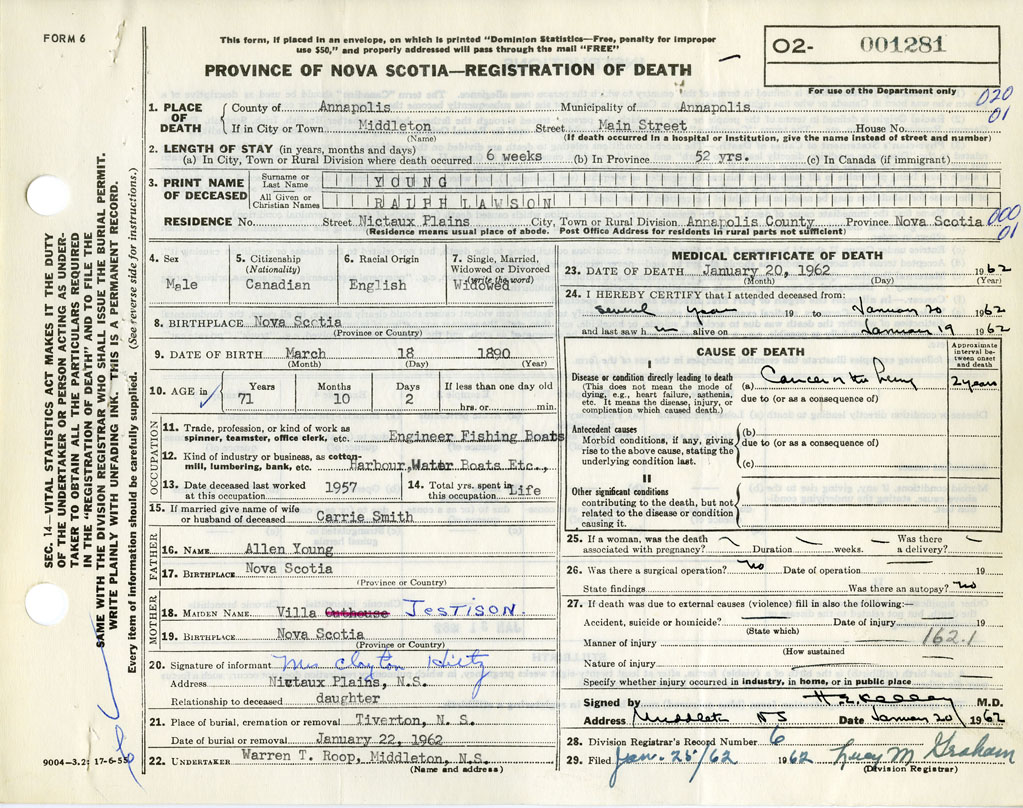 FORM 6
This form, if placed in an envelope, on which is printed "Dominion Statistics—Free, penalty for improper
use $50," and properly addressed will pass through the mail "FREE"
PROVINCE OF NOVA SCOTIA—REGISTRATION OF DEATH
02- 001281
For use of the Department only
020
01
1. PLACE OF DEATH
County of Annapolis Municipality of Annapolis
If in City or Town Middleton Street Main Street House No.
(Name) (If death occurred in a hospital or institution, give the name instead of street and number)
2. LENGTH OF STAY (in years, months and days)
(a) In City, Town or Rural Division where death occurred 6 weeks (b) In Province 52 yrs. (c) In Canada (if immigrant)
3. PRINT NAME OF DECEASED
Surname or Last Name YOUNG
All Given or Christian Names RALPH LAWSON
RESIDENCE No. Street Nictaux Plains City, Town or Rural Division Annapolis County Province Nova Scotia
000
01
(Residence means usual place of abode. Post Office Address for residents in rural parts not sufficient)
4. Sex
Male
5. Citizenship (Nationality)
Canadian
6. Racial Origin
English
7. Single, Married, Widowed or Divorced (write the word)
Widowed
8. BIRTHPLACE Nova Scotia
(Province or Country)
9. DATE OF BIRTH March 18 1890
(Month) (Day) (Year)
10. AGE in Years Months Days If less than one day old
71 10 2 hrs. or min.
OCCUPATION
11. Trade, profession, or kind of work as
spinner, teamster, office clerk, etc. Engineer Fishing Boats
12. Kind of industry or business, as cotton-
mill, lumbering, bank, etc. Harbour, Water Boats Etc..,
13. Date deceased last worked at this occupation 1957
14. Total yrs. spent in this occupation Life
15. If married give name of wife
or husband of deceased Carrie Smith
FATHER
16. NAME Allen Young
17. BIRTHPLACE Nova Scotia
(Province or Country)
MOTHER
18. MAIDEN NAME Villa Outhouse JESTISON.
19. BIRTHPLACE Nova Scotia
(Province or Country)
20. Signature of informant Mrs Clayton Hiltz
Address Nictaux Plains, N.S.
Relationship to deceased daughter
21. Place of burial, cremation or removal Tiverton, N. S.
Date of burial or removal January 22, 1962
22. UNDERTAKER Warren T. Roop, Middleton, N.S.
(Name and address)
MEDICAL CERTIFICATE OF DEATH
23. DATE OF DEATH January 20, 1962 1962
(Month) (Day) (Year)
24. I HEREBY CERTIFY that I attended deceased from:
several years 19 to January 20 1962
and last saw him alive on January 19 1962
CAUSE OF DEATH
Approximate interval between onset and death
I
Disease or condition directly leading to death
(This does not mean the mode of
dying, e.g., heart failure, asthenia,
etc. It means the disease, injury, or
complication which caused death.)
(a) Cancer of the lung 2 years
due to (or as a consequence of)
Antecedent causes
Morbid conditions, if any, giving
rise to the above cause, stating the
underlying condition last.
(b)
due to (or as a consequence of)
(c)
II
Other significant conditions
contributing to the death, but not
related to the disease or condition
causing it.
25. If a woman, was the death Was there
associated with pregnancy? Duration weeks. a delivery?
26. Was there a surgical operation? No Date of operation 19
State findings Was there an autopsy? No
27. If death was due to external causes (violence) fill in also the following:—
Accident, suicide or homicide? Date of injury 19
(State which)
Manner of injury 162.1
(How sustained
Nature of injury
Specify whether injury occurred in industry, in home, or in public place
Signed by H. E. Kelley M.D.
Address Middleton NS Date January 20/ 1962
28. Division Registrar's Record Number 6
29. Filed Jan. 25/62 1962 Lucy M Graham
(Division Registrar)
SEC. 14—VITAL STATISTICS ACT MAKES IT THE DUTY
OF THE UNDERTAKER OR PERSON ACTING AS UNDER-
TAKER TO OBTAIN ALL THE PARTICULARS REQUIRED
IN THE "REGISTRATION OF DEATH" AND TO FILE THE
SAME WITH THE DIVISION REGISTRAR WHO SHALL ISSUE THE BURIAL PERMIT.
WRITE PLAINLY WITH UNFADING INK. THIS IS A PERMANENT RECORD.
Every item of information should be carefully supplied. (See reverse side for instructions.)
9004—3.2: 17-6-55